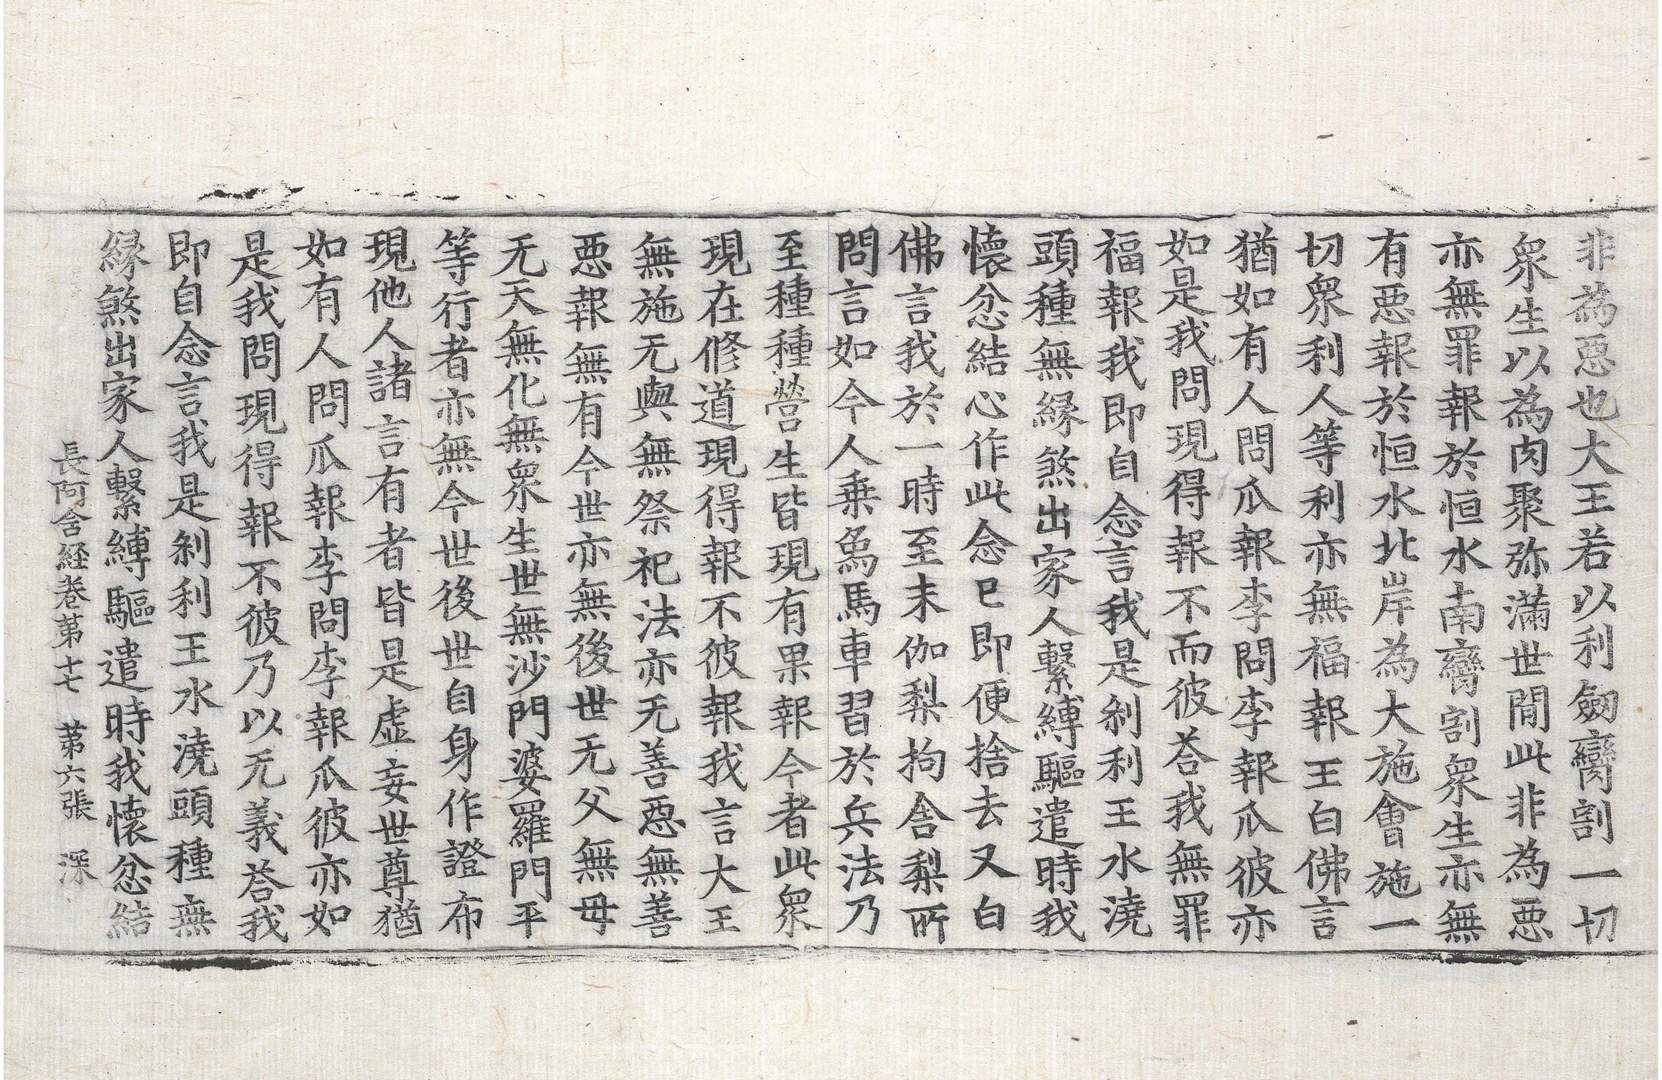 非為惡也大王若以利劒臠割一切
衆生以為肉聚弥滿世閒此非為惡
亦無罪報於恒水南臠割衆生亦無
有惡報於恒水北岸為大施會施一
切衆利人等利亦無福報王白佛言
猶如有人問瓜報李問李報瓜彼亦
如是我問現得報不而彼荅我無罪
福報我即自念言我是刹利王水澆
頭種無縁煞出家人繫縛驅遣時我
懷忿結心作此念已即便捨去又白
佛言我於一時至末伽梨拘舍梨所
問言如今人乗象馬車習於兵法乃
至種種營生皆現有果報今者此衆
現在修道現得報不彼報我言大王
無施无與無祭祀法亦无善惡無善
惡報無有今世亦無後世无父無母
无天無化無衆生世無沙門婆羅門平
等行者亦無今世後世自身作證布
現他人諸言有者皆是虛妄世尊猶
如有人問瓜報李問李報瓜彼亦如
是我問現得報不彼乃以无義荅我
即自念言我是刹利王水澆頭種無
縁煞出家人繫縛驅遣時我懷忿結
長阿含経卷苐十七　苐六張　深